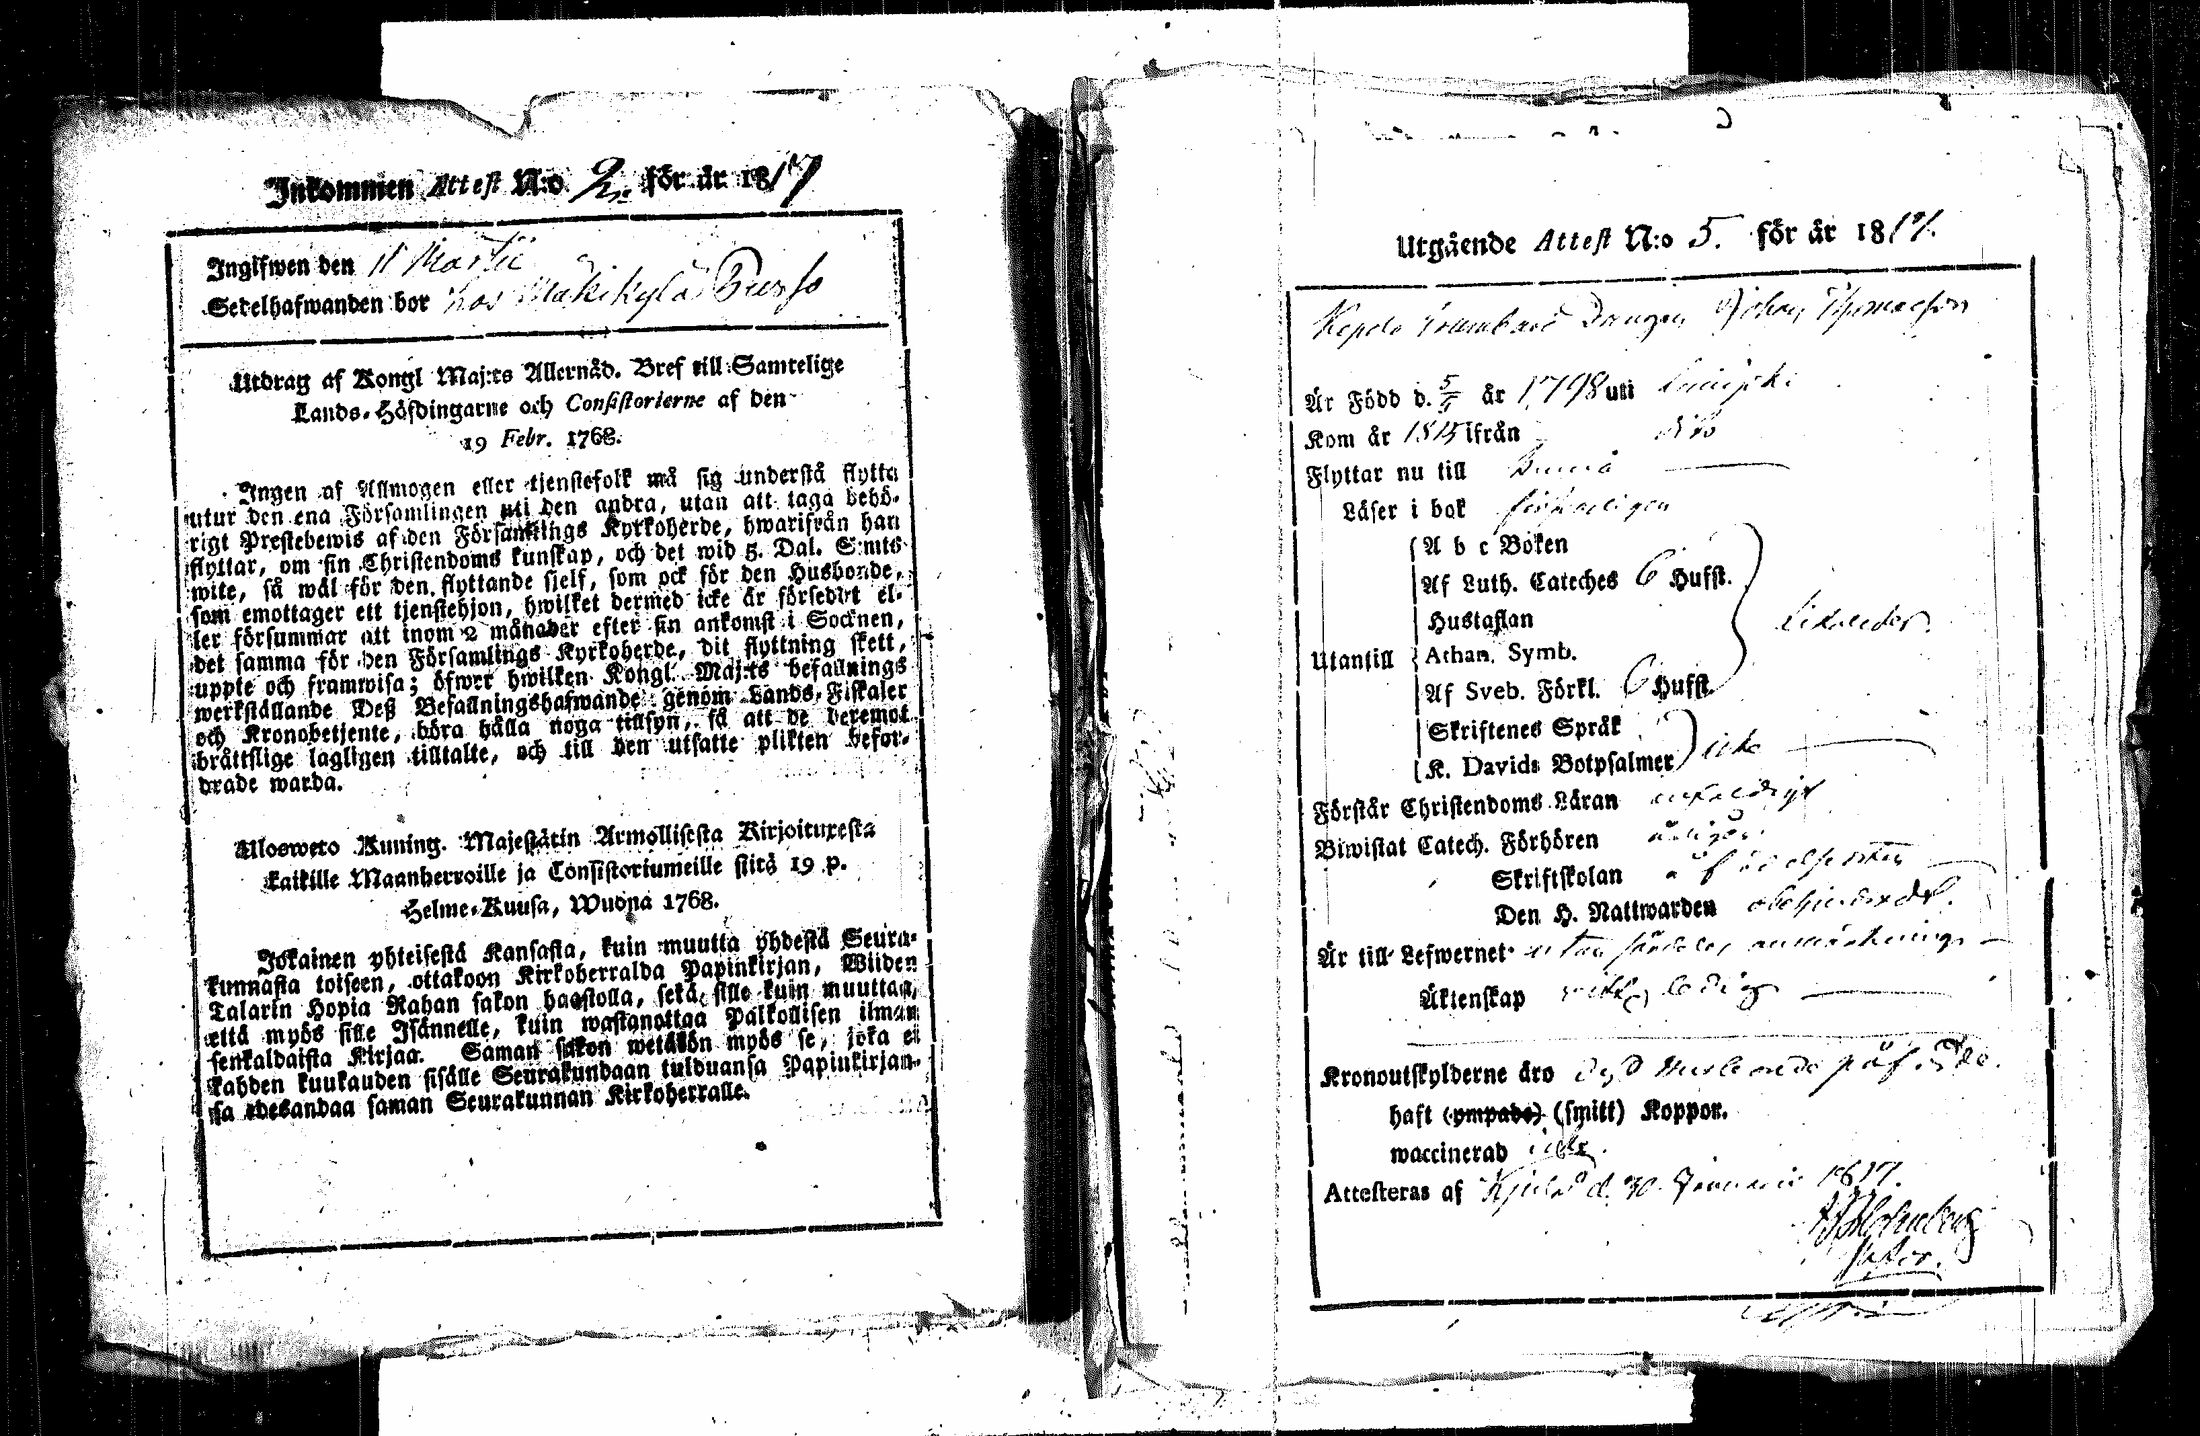 Inkommen Attest N:o 2. för år 1817
Ingifwen den 11 Martii
Sedelhafwanden bor hos Mäkikylä Pusso
Utdrag af Kongl Maj:ts Allernåd. Bref till Samtelige
Lands-Höfdingarne och Consistorierne af den
19 Febr. 1768.
Ingen af Allmogen eller tjenstefolk må sig understå flytta
utur den ena Församlingen uti den andra, utan att taga behö-
rigt Prestebewis af den Församlings Kyrkoherde, hwarifrån han
flyttar, om sin Christendoms kunskap, och det wid 5. Dal. S:mts
wite, så wäl för den flyttande sjelf, som ock för den Husbonde,
som emottager ett tjenstehjon, hwilket dermed icke är försedt el-
ler försummar att inom 2 månader efter sin ankomst i Socknen,
det samma för den Församlings Kyrkoherde, dit flyttning skett,
uppte och framwisa; öfwer hwilken Kongl. Maj:ts befallnings
werkställande Deß Befallningshafwande genom Lands-Fiskaler
och Kronobetjente, böra hålla noga tillsyn, så att de deremot
bråttslige lagligen tilltalte, och till den utsatte plikten befor-
drade warda.
Ulosweto Kuning. Majestätin Armollisesta Kirjoituxesta
kaikille Maanherroille ja Consistoriumeille siitä 19 p.
Helme-Kuusa, Wuona 1768.
Jokainen yhteisestä Kansasta, kuin muutta yhdestä Seura-
kunnasta toiseen, ottakoon Kirkoherralda Papinkirjan, Wiiden
Talarin Hopia Rahan sakon haastolla, sekä sille kuin muuttaa,
että myös sille Isännelle, kuin wastanottaa Palkollisen ilman
senkaldaista Kirjaa. Saman sakon wetäkön myös se, joka ei
kahden kuukauden sisälle Seurakundaan tulduansa Papinkirjan-
sa edesandaa saman Seurakunnan Kirkoherralle.
Utgående Attest N:o 5. för år 1817.
Drängen Johan Thomasson
Är Född d. 5/ år 1798 uti
Kom år 1815 ifrån dito
Flyttar nu till
Läser i bok försvarligen
A b c Boken
Af Luth. Cateches 6 Hufst.
Hustaflan
Utantill Athan. Symb.
Af Sveb. Förkl. 6 Hufst.
Skriftenes Språk
K. Davids Botpsalmer icke
Förstår Christendoms Läran enfaldigt
Biwistat Catech. Förhören årligen
Skriftskolan
Den H. Nattwarden
Är till Lefwernet utan anmärkning
Äktenskap ledig
Kronoutskylderne äro
haft (ympade) (smitt) Koppor.
waccinerad icke.
Attesteras af Kjulo d. 30 Januarii 1817.